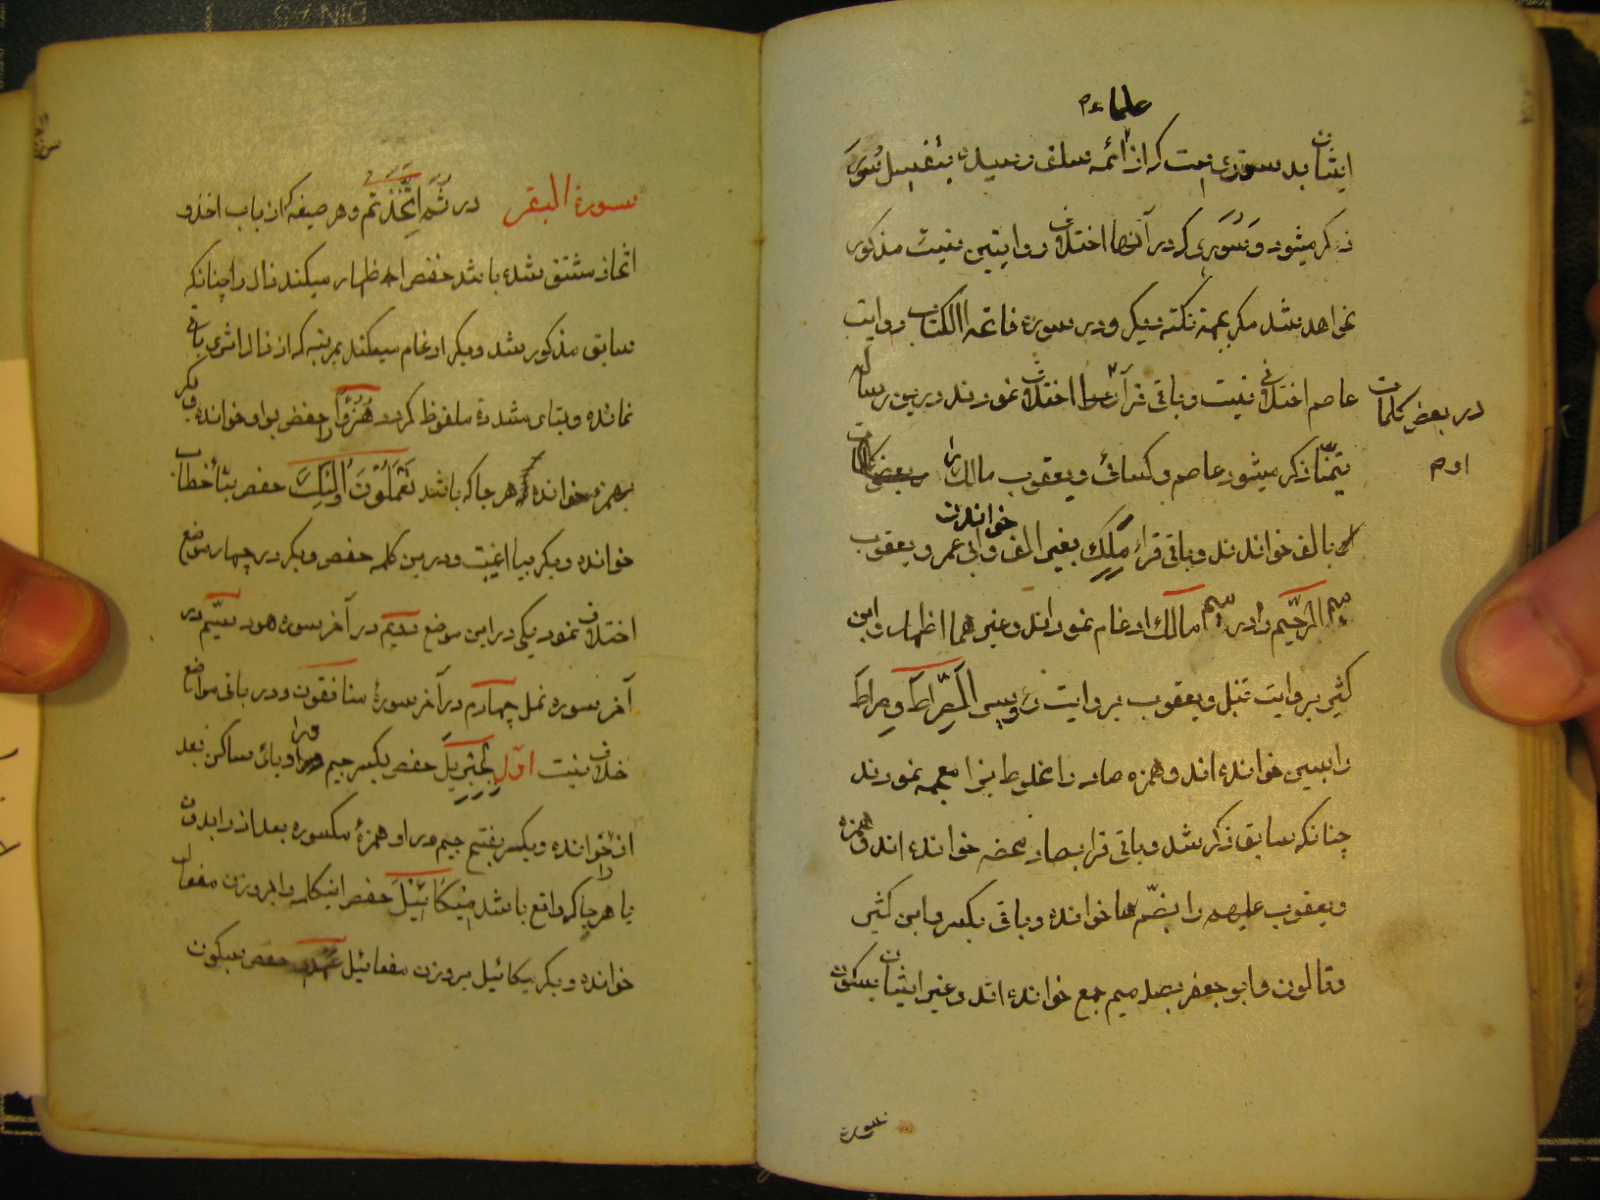 علما
ایشان بد ستوری است که از ائمه سلف رسیده بتفصیل سُوَرَ
ذکر میشود وَ سُوَری که در آنها اختلاف روایتین نیست مذکور
نخواهد شد مکر بجهة نکته دیکر و در سوره فاتحه الکتاب روایت
عاصم اختلافی نیست و باقی قرآ را اختلاف نمودند درین رساله
در بعض کلمات
تیمّنا ذکر میشود عاصم و کسائی و یعقوب مالک را
بالف خوانده‌اند و باقی قراء مَلِكِ بغیر الف و ابی عمرو یعقوب
خوانده‌اند
میم الرّحیم را در میم مالک ادغام نموده‌اند و غیر هما اظهار و ابن
کثیر بروایت قنبل و یعقوب بروایت رویس الصِّراطَ و صِراطَ
را بسین خوانده‌اند و همزه صاد را مخلوط بزا معجمه نمودند
چنانکه سابق ذکر شد و باقی قرا بصاد محضه خوانده‌اند و همزه
و یعقوب علیهم را بضمّ ها خوانده و باقی بکسر و ابن کثیر
و قالون و ابو جعفر بصله میم جمع خوانده‌اند و غیر ایشان بسکون
سورة
سورة البقر در ثُمَّ اتَّخَذْتُم و هر صیغه که از باب اخذ و
اتخاذ مشتق شده باشد حفص اظهار میکند ذال را چنانکه
سابق مذکور شد و بکر ادغام میکند بمرتبه که از ذال اثری باقی
نمانده و بتای مشدده ملفوظ کردد هُزُوًا را حفص بواو خوانده و بکر
بهمزه خوانده هر جا که باشد تَعْمَلُونَ اُولٰئِكَ حفص بتاء خطاب
خوانده و بکر بیا غیبت و درین کلمه حفص و بکر در چهار موضع
اختلاف نمود یکی در این موضع دویم در آخر سوره هود سیّم در
آخر سوره نمل چهارم در آخر سورهٔ منافقون و در باقی مواضع
خلاف نیست اوّل لِجِبْرِیلَ حفص بکسر جیم و را و یای ساکن بعد
از را خوانده و بکر بفتح جیم و را و همزهٔ مکسوره بعد از را بدون
یا هر جا که واقع باشد مِیْکَائِیْلَ حفص اینکلمه را بر وزن مفعال
خوانده و بکر میکائیل بر وزن مفعائیل عهد حفص بسکون